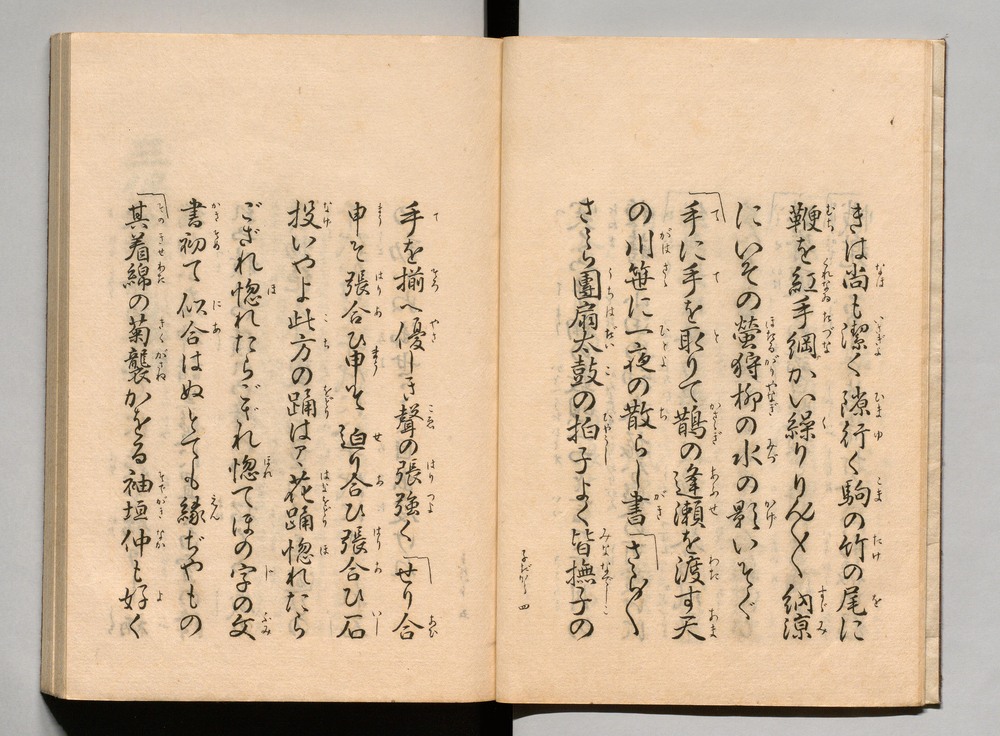 きは尚も潔く隙行く駒の竹の尾に
鞭を紅手綱かい繰りりん〳〵納涼
にいその螢狩柳の水の影いそぐ
手に手を取りて鵲の逢瀬を渡す天
の川笹に一夜の散らし書さら〳〵
さら團扇太鼓の拍子よく皆撫子の
四
手を揃へ優しき聲の張強くせり合
申そ張合ひ申そ迫り合ひ張合ひ石
投いやよ此方の踊はア花踊惚れたら
ござれ惚れたらござれ惚てほの字の文
書初て似合はぬとても縁ぢやもの
其着綿の菊襲かをる袖垣仲も好く